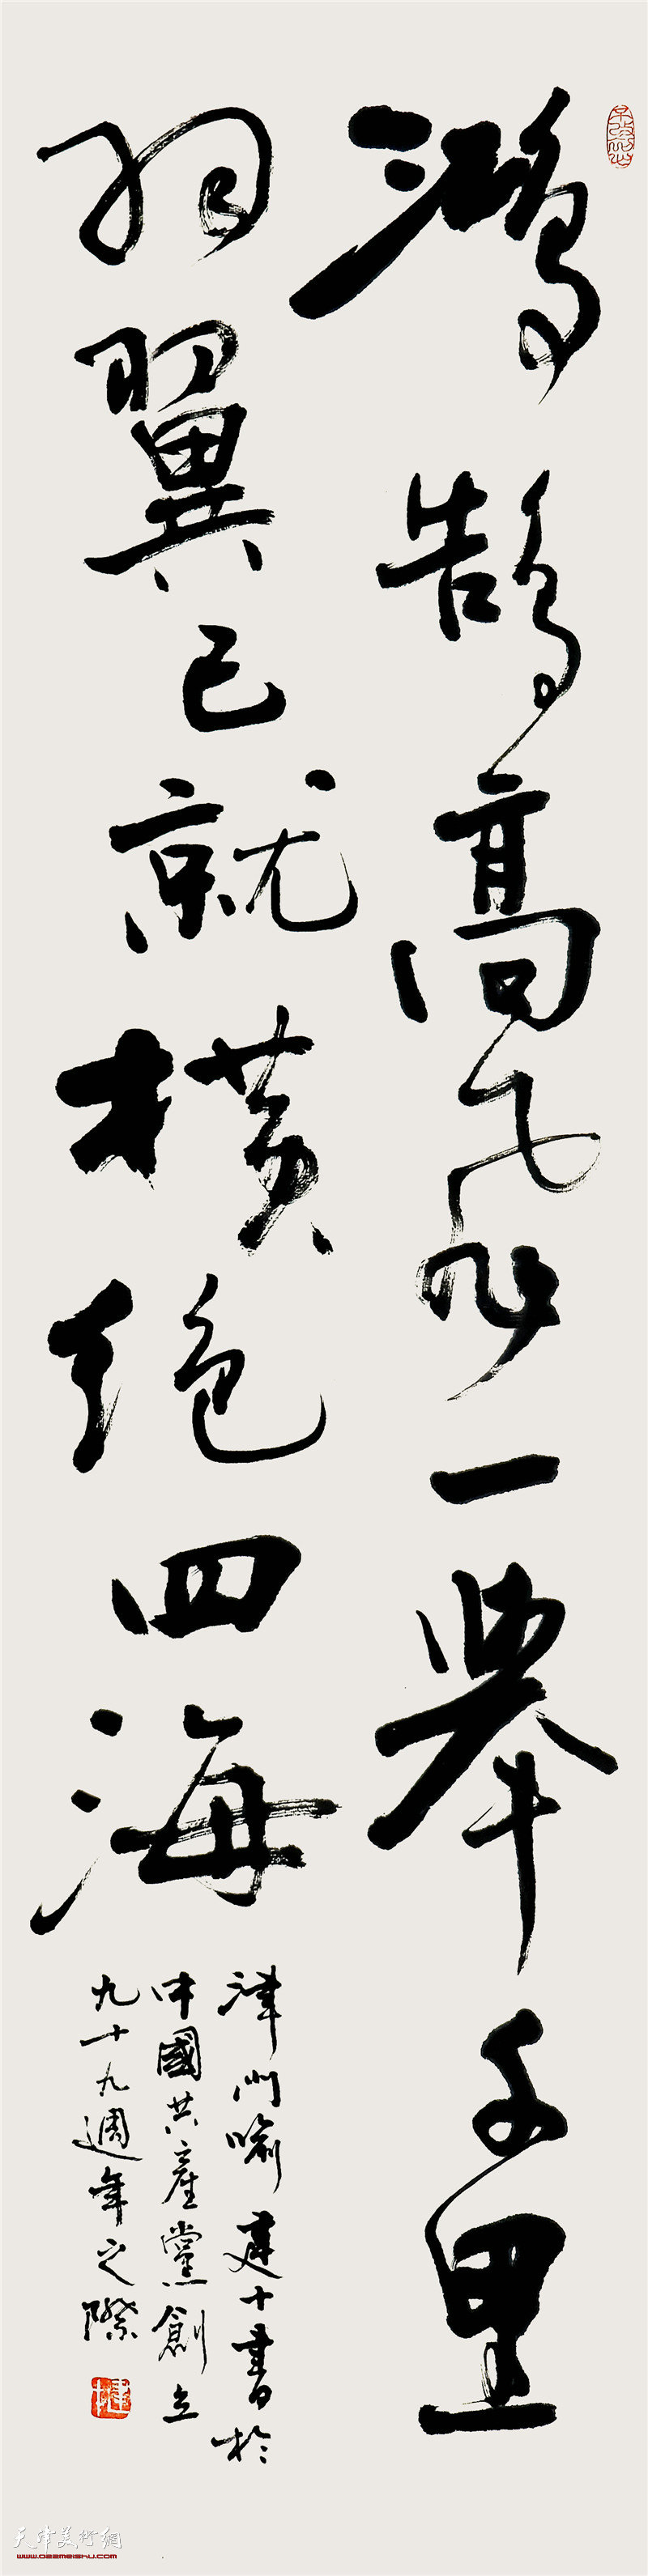 鴻鵠高飛一舉千里
羽翼已就橫絕四海
津門喻建十書於
中國共產黨創立
九十九週年之際
天津美術網
www.022meishu.com